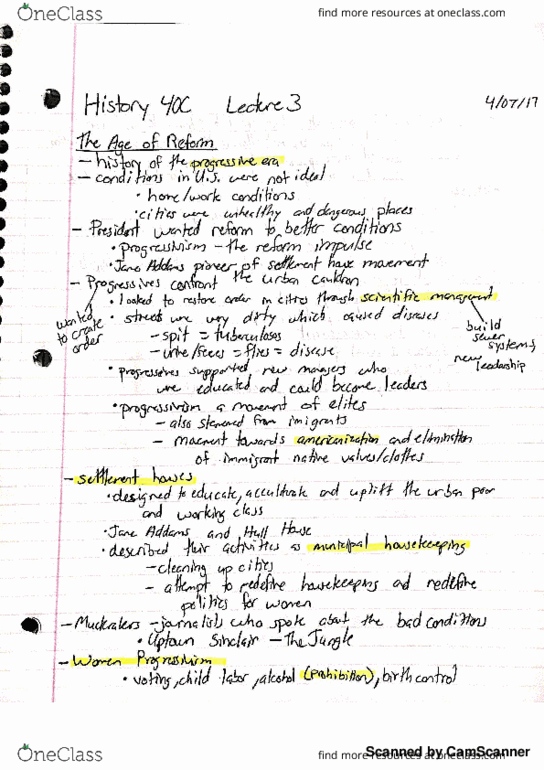 OneClass find more resources at oneclass.com
History 40C Lecture 3 4/07/17
The Age of Reform
- history of the progressive era
- conditions in U.S. were not ideal
• home/work conditions
• cities were unhealthy and dangerous places
- President wanted reform to better conditions
• progressivism - the reform impulse
• Jane Addams pioneer of settlement house movement
- Progressives confront the urban cauldron
• looked to restore order in cities through scientific management
wanted to create order
• streets were very dirty which caused diseases
build sewer systems, new leadership
- spit = tuberculoses
- urine/feces = flies = disease
• progressives supported new managers who
were educated and could become leaders
• progressivism a movement of elites
- also stemmed from imigrants
- movment towards americanization and elimination
of immigrant native values/clothes
- settlement houses
• designed to educate, acculturate and uplift the urban poor
and working class
• Jane Addams and Hull House
• described their activities as municipal housekeeping
- cleaning up cities
- attempt to redefine housekeeping and redefine
politics for women
- Muckrakers - journalists who spoke about the bad conditions
• Uptown Sinclair - The Jungle
- Women Progressivism
• voting, child labor, alcohol (prohibition), birth control
OneClass find more resources at oneclass.com
Scanned by CamScanner